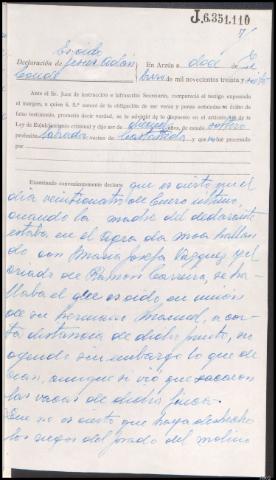 J.6.351.110
Declaración de
Conde
En Arzúa a doce de
de mil novecientos treinta y
Ante el Sr. Juez de instrucción e infrascrito Secretario, comparecía el testigo expresado
al margen, a quien S. S.ª enteró de la obligación de ser veraz y penas señaladas al delito de
falso testimonio, prometió decir verdad, se le advirtió de lo dispuesto en el artículo de la
Ley de Enjuiciamiento criminal y dijo ser de años, de estado soltero
profesión labrador vecino de y que no procesado
Examinado convenientemente declara: que es cierto que el
día veinticuatro de Enero último,
cuando la madre del declarante
estaba en el
do con María Josefa Vázquez y el
criado de Ramón se ha-
llaba el que es oido, en unión
de su hermano Manuel, a cor-
ta distancia de dicho punto, no
oyendo sin embargo lo que de-
cían, aunque si vió que sacaron
las vacas de dicha finca.
Que no es cierto que haya deshecho
los riegos del prado del molino